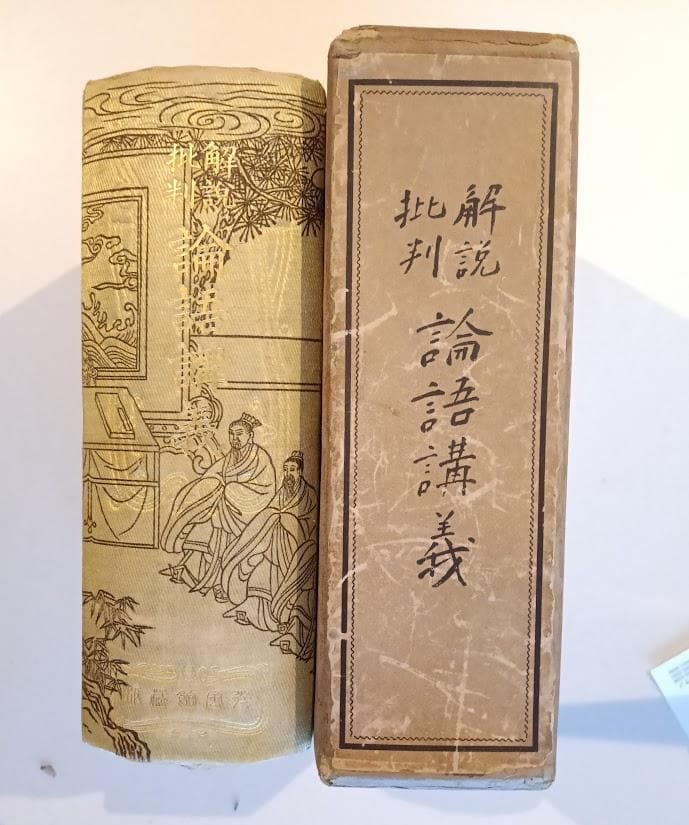 解説
批判
論語講義
解説
批判
論語講義